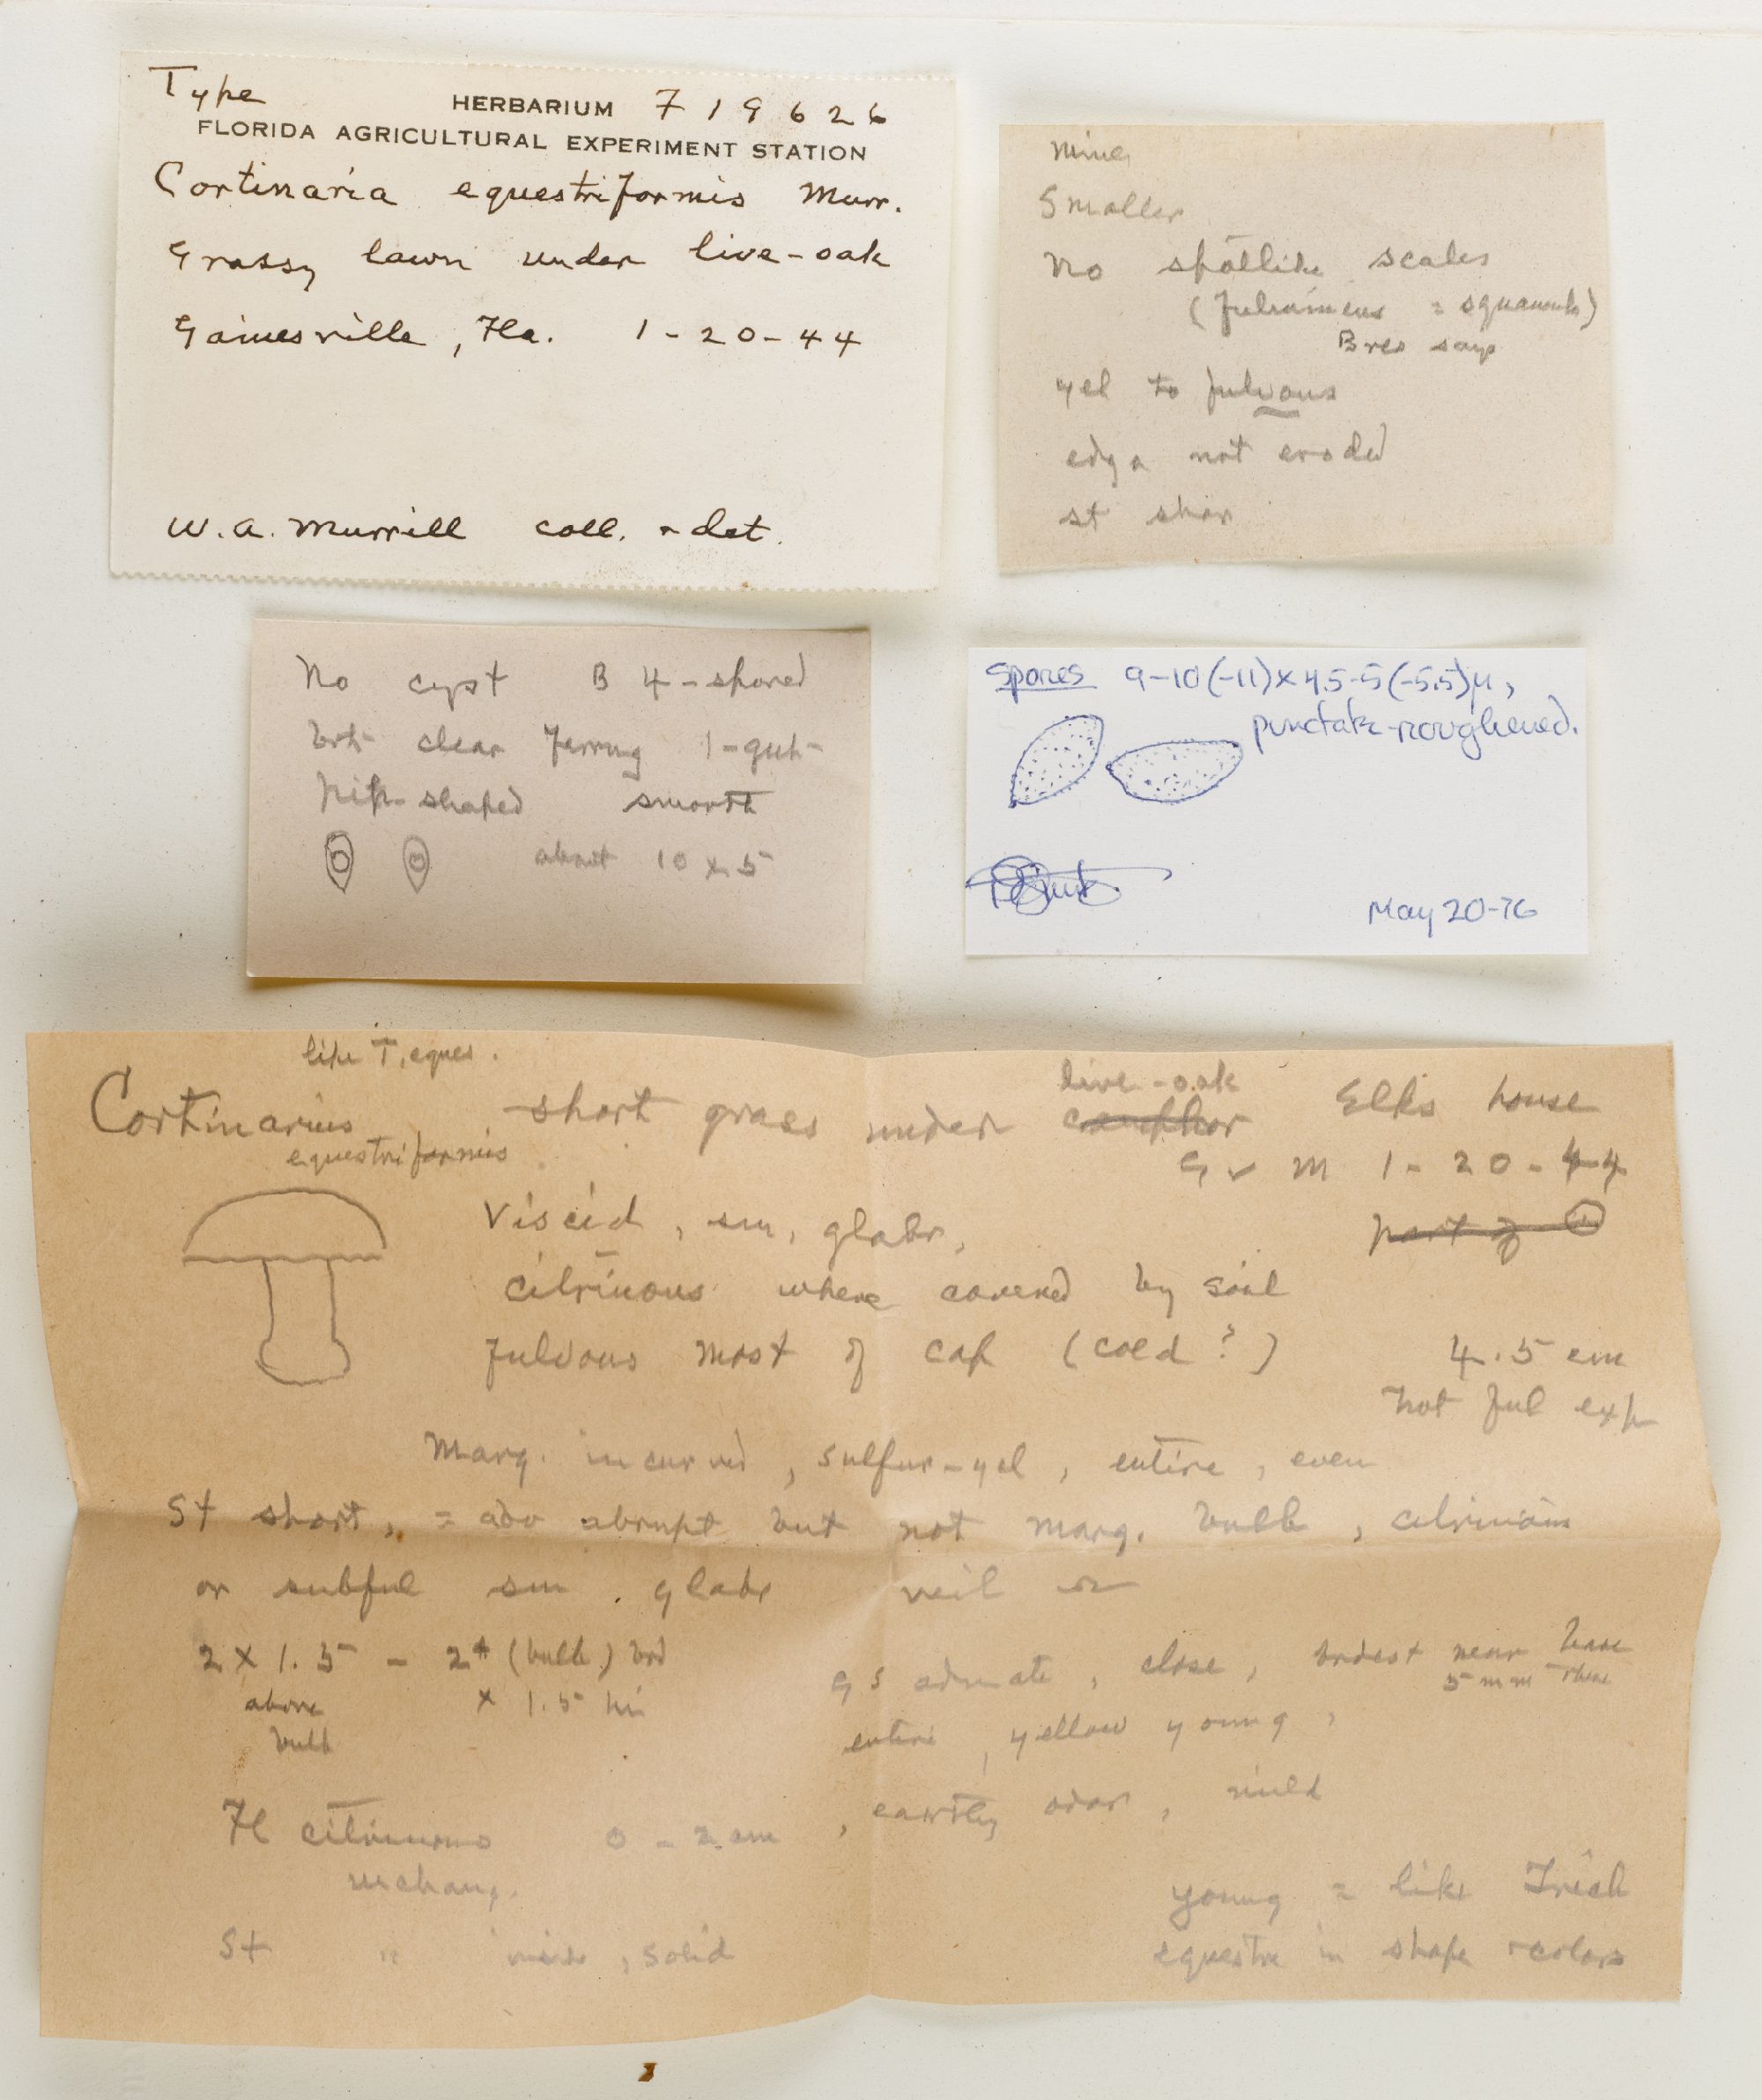 Type
HERBARIUM 719626
FLORIDA AGRICULTURAL EXPERIMENT STATION
Cortinaria equestriformis Murr.
Grassy lawn under live-oak
Gainesville, Fla. 1-20-44
W.A. Murrill coll. & det.
mine
Smaller
No spotlike scales
(fulvineus = squamuls)
Bres says
yel to fulvous
edge not eroded
st shor
No cyst B 4-spored
clear ferrug 1-gutt
pip-shaped smooth
about 10 x 5
Spores 9-10(-11)x4.5-5(-5.5)µ,
punctate-roughened.
May 20-76
like T. eques.
Cortinarius short grass under live-oak Elks house
equestriformis
G v M 1-20-44
part of 1
Viscid, sm, glabr,
citrinous where covered by soil
fulvous most of cap (cold?) 4.5 cm
not ful exp
Marg. incurved, sulfur-yel, entire, even
St short, = abv abrupt but not marg. bulb, citrinous
or subful sm. glabr veil
2 x 1.5 - 2+ (bulb) brd
above x 1.5 hi
bulb
Gs adnate, close, brdest near base
5 mm there
entire, yellow young,
, earthy odor, mild
Fl citrinous 0-2 cm
unchang.
St " , solid
young = like Trich
equestre in shape & colors